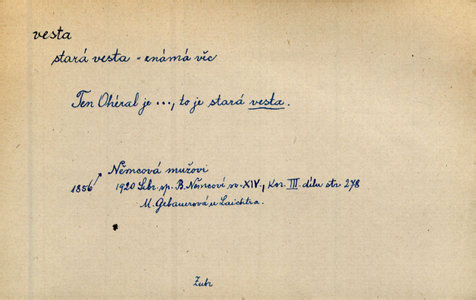 vesta
stará vesta - známá věc
Ten Ohéral je ..., to je stará vesta.
Němcová mužovi
1856
1920 Sebr. sp. B. Němcové sv. XIV., Kor. III. dílu str 278
M. Gebauerová u Laichtra.
Zubr